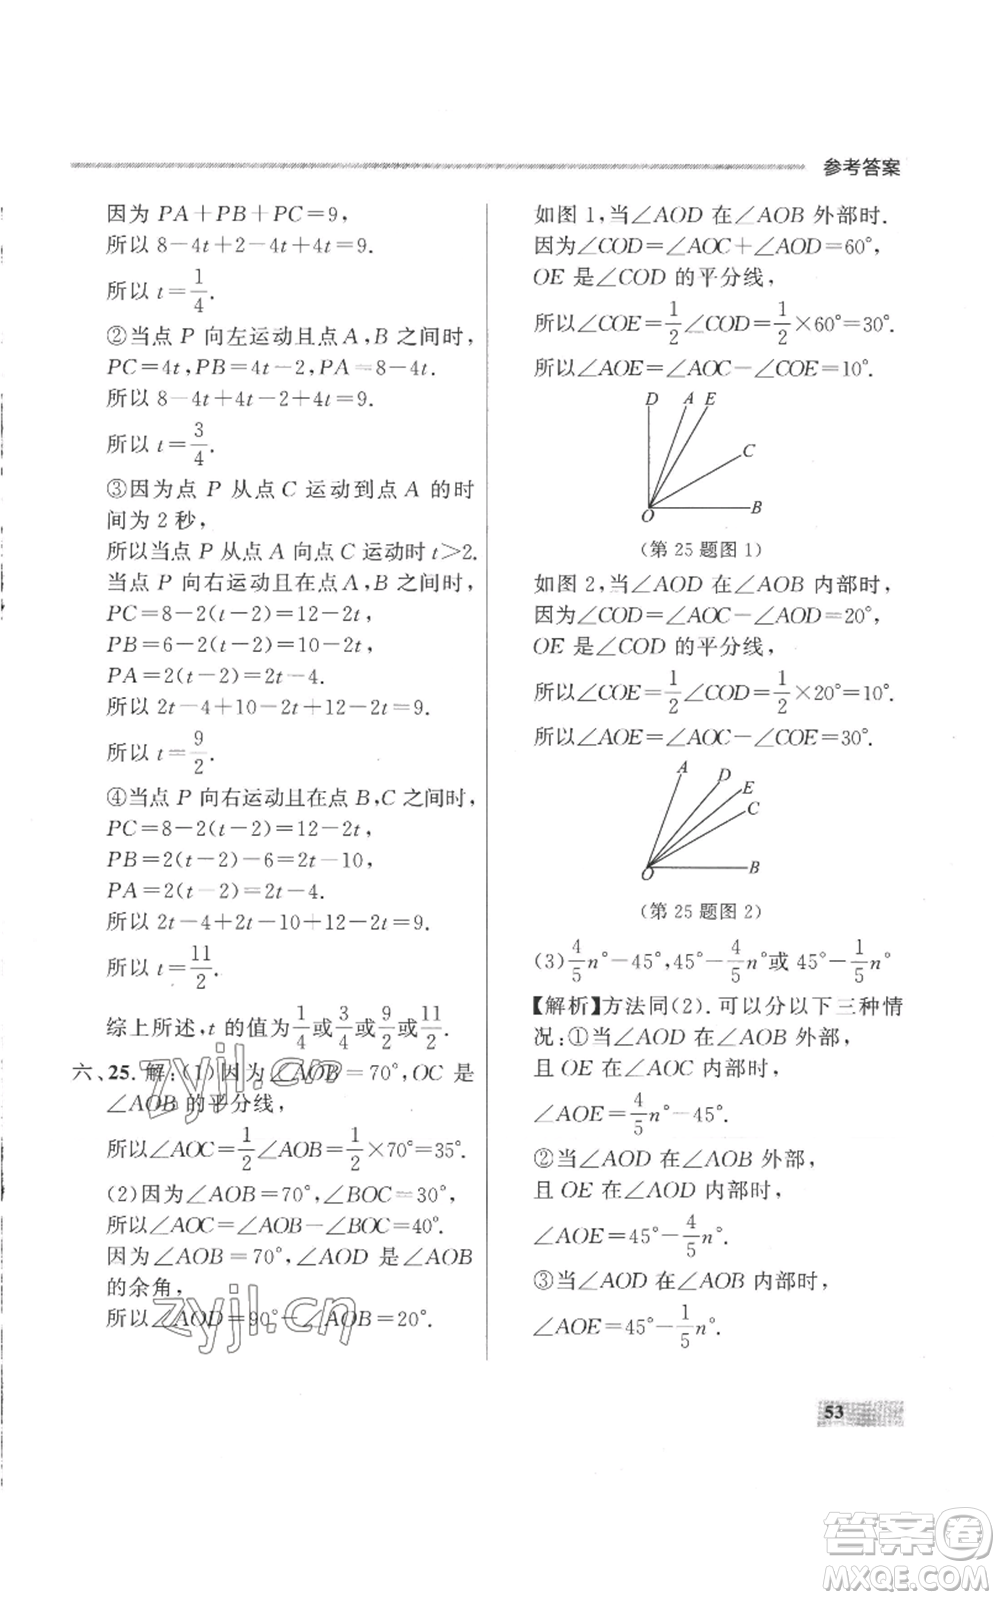 参考答案
因为 PA＋PB＋PC＝9，
所以 8－4t＋2－4t＋4t＝9.
所以 t＝1/4.
②当点 P 向左运动且点 A，B 之间时，
PC＝4t，PB＝4t－2，PA＝8－4t.
所以 8－4t＋4t－2＋4t＝9.
所以 t＝3/4.
③因为点 P 从点 C 运动到点 A 的时
间为 2 秒，
所以当点 P 从点 A 向点 C 运动时 t＞2.
当点 P 向右运动且在点 A，B 之间时，
PC＝8－2(t－2)＝12－2t，
PB＝6－2(t－2)＝10－2t，
PA＝2(t－2)＝2t－4.
所以 2t－4＋10－2t＋12－2t＝9.
所以 t＝9/2.
④当点 P 向右运动且在点 B，C 之间时，
PC＝8－2(t－2)＝12－2t，
PB＝2(t－2)－6＝2t－10，
PA＝2(t－2)＝2t－4.
所以 2t－4＋2t－10＋12－2t＝9.
所以 t＝11/2.
综上所述，t 的值为1/4或3/4或9/2或11/2.
六、25. 解：(1)因为∠AOB＝70°，OC 是
∠AOB 的平分线，
所以∠AOC＝1/2∠AOB＝1/2×70°＝35°.
(2)因为∠AOB＝70°，∠BOC＝30°，
所以∠AOC＝∠AOB－∠BOC＝40°.
因为∠AOB＝70°，∠AOD 是∠AOB
的余角，
所以∠AOD＝90°－∠AOB＝20°.
如图 1，当∠AOD 在∠AOB 外部时.
因为∠COD＝∠AOC＋∠AOD＝60°，
OE 是∠COD 的平分线，
所以∠COE＝1/2∠COD＝1/2×60°＝30°.
所以∠AOE＝∠AOC－∠COE＝10°.
D A E
C
O B
(第 25 题图 1)
如图 2，当∠AOD 在∠AOB 内部时，
因为∠COD＝∠AOC－∠AOD＝20°，
OE 是∠COD 的平分线，
所以∠COE＝1/2∠COD＝1/2×20°＝10°.
所以∠AOE＝∠AOC－∠COE＝30°.
A D
E
C
O B
(第 25 题图 2)
(3)4/5n°－45°，45°－4/5n°或 45°－1/5n°
【解析】方法同(2). 可以分以下三种情
况：①当∠AOD 在∠AOB 外部，
且 OE 在∠AOC 内部时，
∠AOE＝4/5n°－45°.
②当∠AOD 在∠AOB 外部，
且 OE 在∠AOD 内部时，
∠AOE＝45°－4/5n°.
③当∠AOD 在∠AOB 内部时，
∠AOE＝45°－1/5n°.
53
zyjl.cn
zyjl.cn
答案卷
MXQE.COM